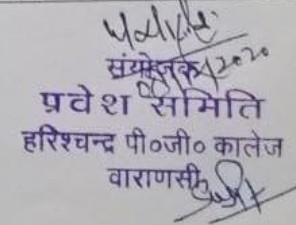 संयोजक
प्रवेश समिति
हरिश्चन्द्र पी०जी० कालेज
वाराणसी